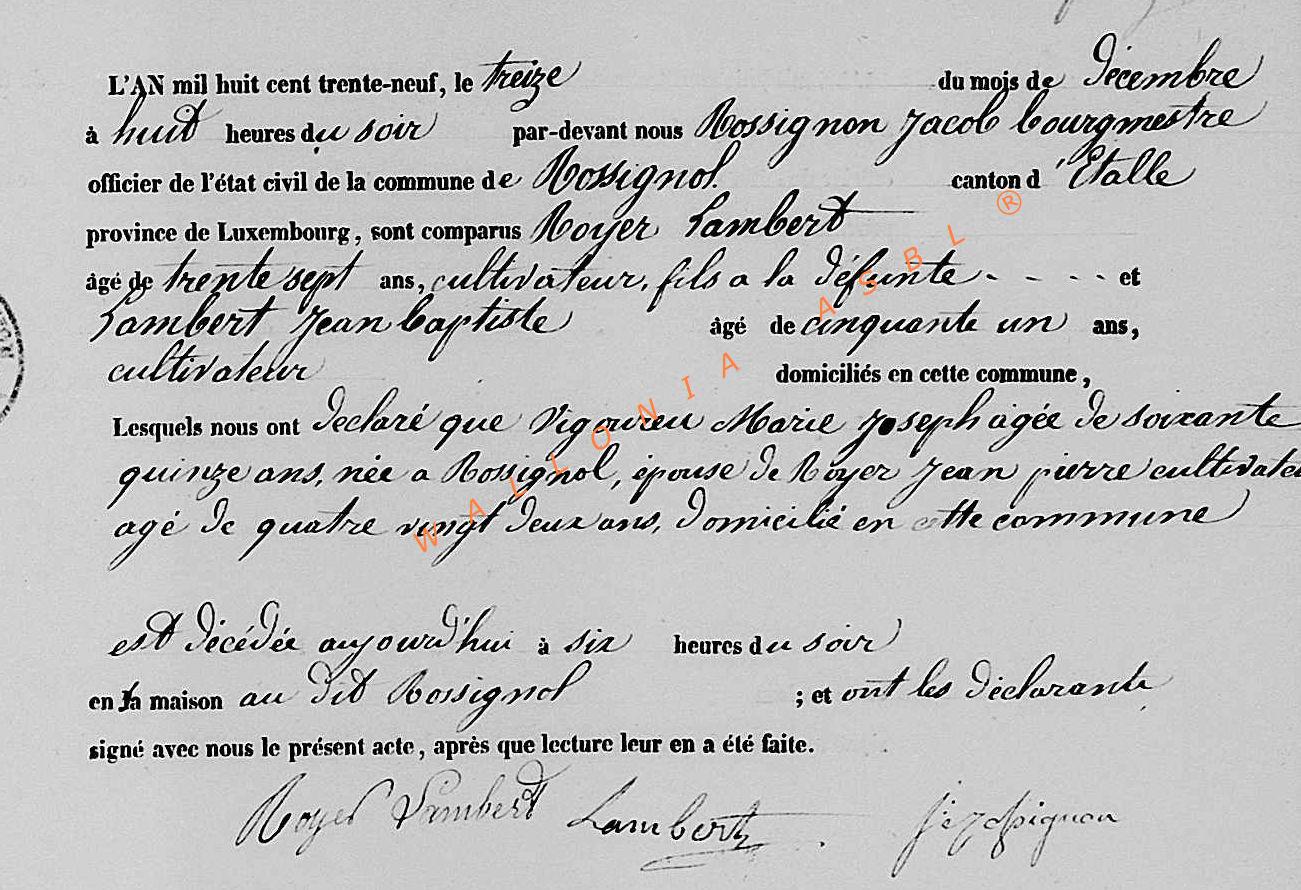 L'AN mil huit cent trente-neuf, le treize du mois de décembre
à huit heures du soir par-devant nous Rossignon Jacob bourgmestre
officier de l'état civil de la commune de Rossignol. canton d'Etalle
province de Luxembourg, sont comparus Royer Lambert
âgé de trente sept ans, cultivateur, fils a la défunte - - - - et
Lambert Jean baptiste âgé de cinquante un ans,
cultivateur domiciliés en cette commune,
Lesquels nous ont déclaré que Vigoureu Marie Joseph agée de soixante
quinze ans, née a Rossignol, épouse de Royer Jean pierre cultivateu
agé de quatre vingt deux ans, domicilié en cette commune
est décédée aujourd'hui à six heures du soir
en sa maison au dit Rossignol ; et ont les déclarants
signé avec nous le présent acte, après que lecture leur en a été faite.
Royer Lambert Lambert
WALLONIA ASBL ®